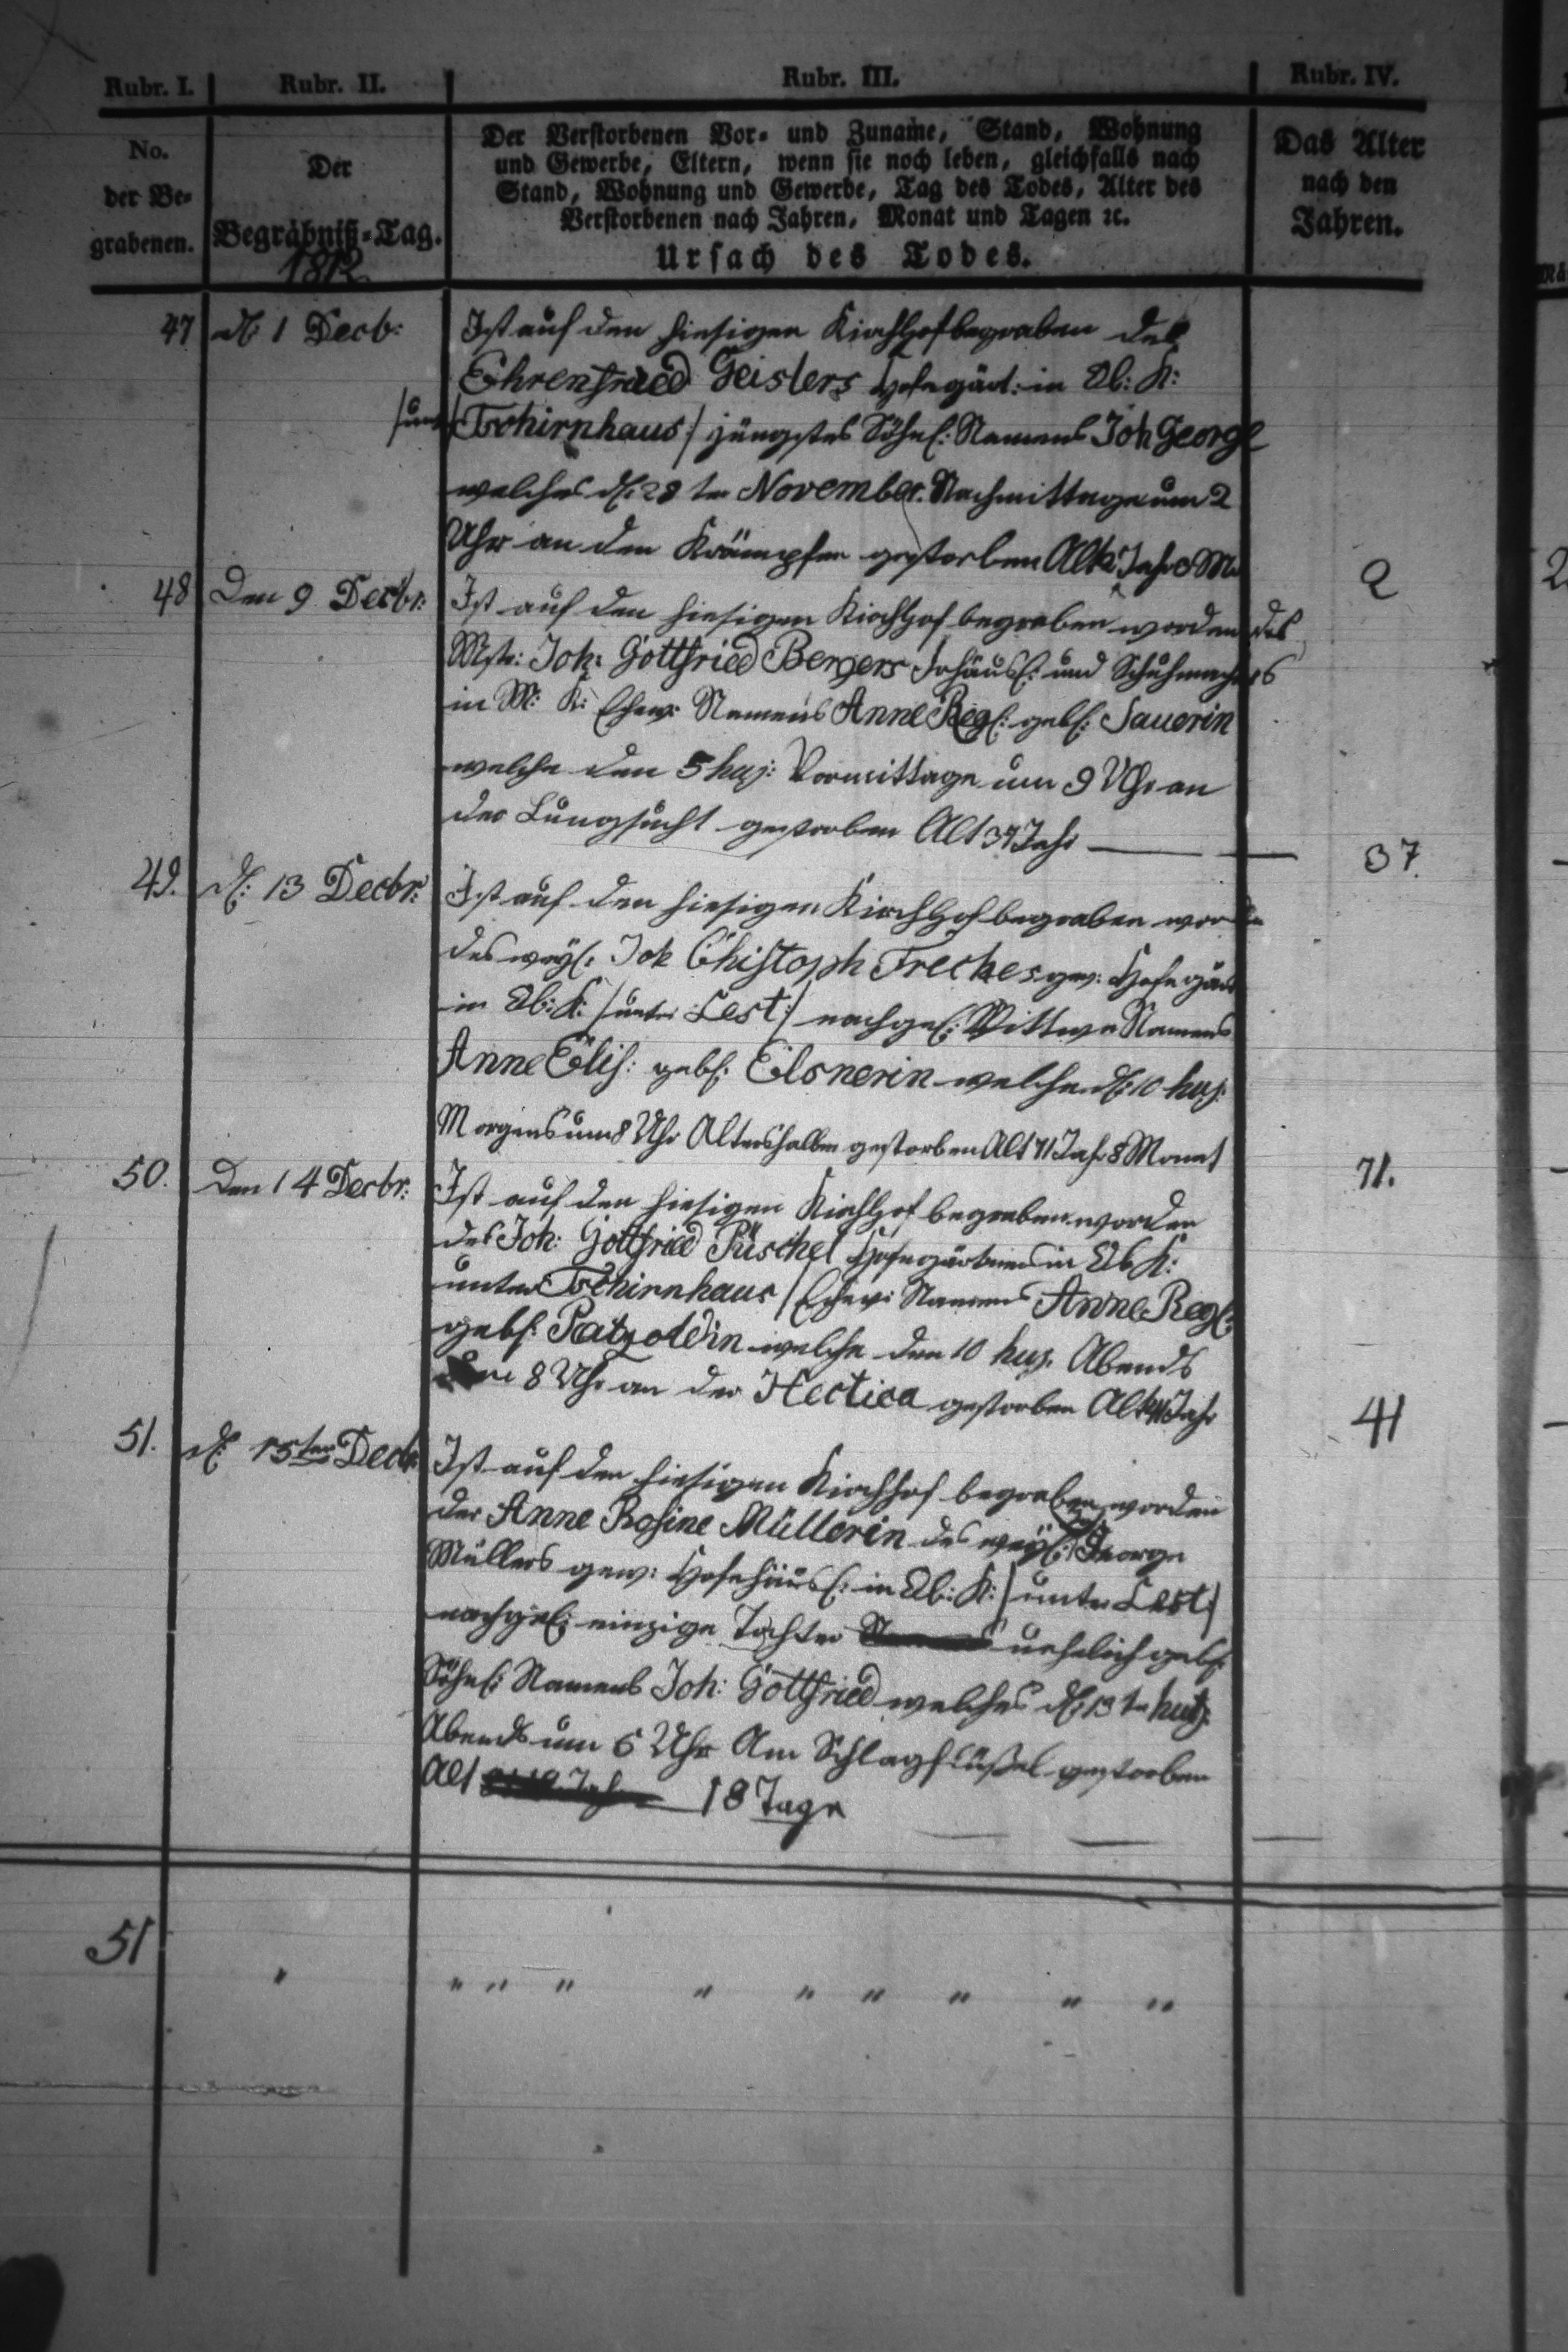 Rubr. I. Rubr. II. Rubr. III. Rubr. IV.
No.
der Be=
grabenen.
Der
Begräbniß=Tag.
1812
Der Verstorbenen Vor= und Zuname, Stand, Wohnung
und Gewerbe, Eltern, wenn sie noch leben, gleichfalls nach
Stand, Wohnung und Gewerbe, Tag des Todes, Alter des
Verstorbenen nach Jahren, Monat und Tagen ꝛc.
Ursach des Todes.
Das Alter
nach den
Jahren.
47 d. 1 Decb: Ist auf den hiesigen Kirchhof begraben des
Ehrenfried Geislers Hofegärt: in Ob: K:
/unt Tschirnhaus/ jüngstes Söhnl: Namens Joh George
welches d: 28 ten November. Nachmittage um 2
Uhr an den Krämpfen gestorben Alt 2 Jahr
2
48 Den 9 Decbr: Ist auf den hiesigen Kirchhof begraben worden des
Mstr: Joh: Gottfried Bergers Frhäusl: und Schuhmachers
in M: K: Ehew: Namens Anne Regl: gebl: Sauerin
welche den 5 huj: Vormittage um 9 Uhr an
der Lungsucht gestorben Alt 37 Jahr
37.
49. d: 13 Decbr: Ist auf den hiesigen Kirchhof begraben worden
des weyl: Joh Christoph Freches gew: Hofegärt
in Ob: K: /unter Lest:/ nachgel: Wittwe Namens
Anne Elis: gebl: Elsnerin welche d: 10 huj:
Morgens um 8 Uhr Altershalben gestorben Alt 71 Jahr 8 Monat
71.
50. Den 14 Decbr: Ist auf den hiesigen Kirchhof begraben worden
des Joh: Gottfried Püschel Hofegärtners in Ob K:
unter Tschirnhaus / Ehew: Namens Anne Regl:
gebl: Patzoldin welche den 10 huj. Abends
um 8 Uhr an der Hectica gestorben Alt 41 Jahr
41
51. d: 15ten Decb: Ist auf den hiesigen Kirchhof begraben worden
der Anne Rosine Müllerin des weyl: George
Müllers gew: Hofehäusl: in Ob: K: /unter Lest:/
nachgel: einzige Tochter unehelich gebl:
Söhnl: Namens Joh: Gottfried welches d: 13 ten huj:
Abends um 6 Uhr Am Schlagflüßel gestorben
Alt 18 Tage
51 " " " " " " " " " "